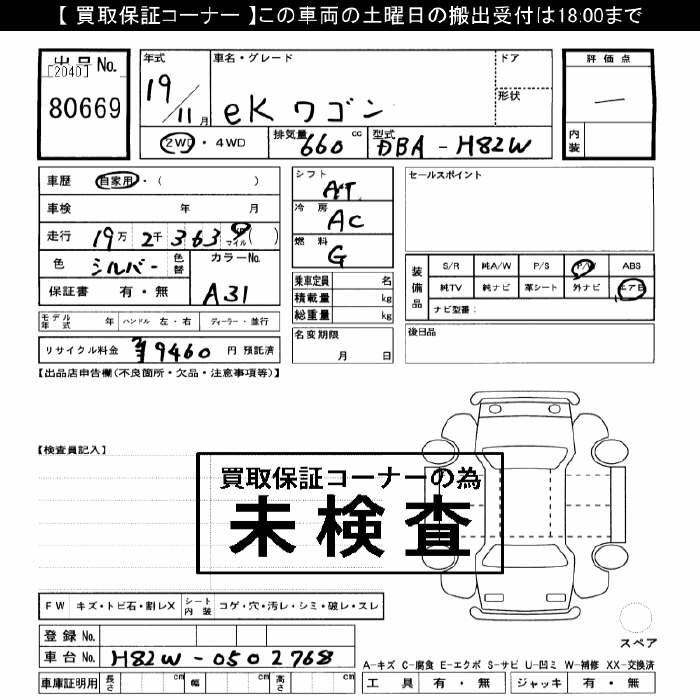 【 買取保証コーナー 】この車両の土曜日の搬出受付は18:00まで
出品 No.
[2040]
80669
年式
19/11月
車名・グレード
eK ワゴン
ドア
形状
評価点
—
内装
2WD・4WD
排気量 660 cc
型式 DBA - H82W
車歴 自家用・( )
車検 年 月
走行 19万 2千 363 マイル( )
色 シルバー 色替
カラーNo. A31
保証書 有・無
シフト AT
冷房 AC
燃料 G
乗車定員 名
積載量 kg
総重量 kg
セールスポイント
装備品
S/R 純A/W P/S P/W ABS
純TV 純ナビ 革シート 外ナビ エアB
ナビ型番:
モデル年式 年 ハンドル 左・右 ディーラー・並行
リサイクル料金 ¥9460 円 預託済
名変期限
月 日
後日品
【出品店申告欄(不良箇所・欠品・注意事項等)】
【検査員記入】
買取保証コーナーの為
未検査
FW キズ・トビ石・割レX シート内装 コゲ・穴・汚レ・シミ・破レ・スレ
登録No.
車台No. H82W-0502768
車庫証明用 長さ cm 幅 cm 高さ cm
スペア
A-キズ C-腐食 E-エクボ S-サビ U-凹ミ W-補修 XX-交換済
工具 有・無 ジャッキ 有・無